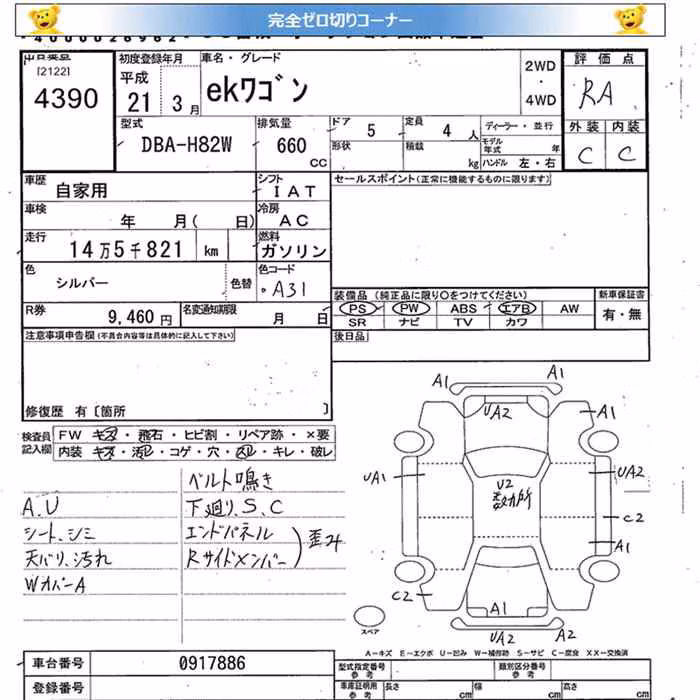 完全ゼロ切りコーナー
[2122]
4390
初度登録年月
平成
21年 3月
車名・グレード
ekワゴン
2WD
・
4WD
評価点
RA
外装 内装
C C
型式
DBA-H82W
排気量
660
CC
ドア 5
形状
定員 4 人
積載 kg
ディーラー・並行
モデル年式 年
ハンドル 左・右
車歴
自家用
シフト
IAT
セールスポイント(正常に機能するものに限ります)
車検
年 月( 日)
冷房
AC
走行
14万5千821 km
燃料
ガソリン
色
シルバー
色替
色コード
A31
装備品 (純正品に限り○をつけてください)
新車保証書
PS PW ABS エアB AW
有・無
SR ナビ TV カワ
R券
9,460円
名変通知期限
月 日
注意事項申告欄(不具合内容等は具体的に記入して下さい)
後日品
修復歴 有〔箇所 〕
検査員
記入欄
FW キズ・飛石・ヒビ割・リペア跡・×要
内装 キズ・汚レ・コゲ・穴・スレ・キレ・破レ
ベルト鳴き
A.U
下廻り.S.C
シート.シミ
エンドパネル
天バリ.汚れ
Rサイドメンバー
歪み
WカバーA
A1 A1
UA2
A1
UA1
U2
数カ所
UA2
C2
A1
C2
A1
UA2 A2
スペア
A－キズ E－エクボ U－凹み W－補修跡 S－サビ C－腐食 XX－交換済
車台番号
0917886
登録番号
型式指定番号
参考
類別区分番号
参考
車庫証明用
参考
長さ cm
幅 cm
高さ cm